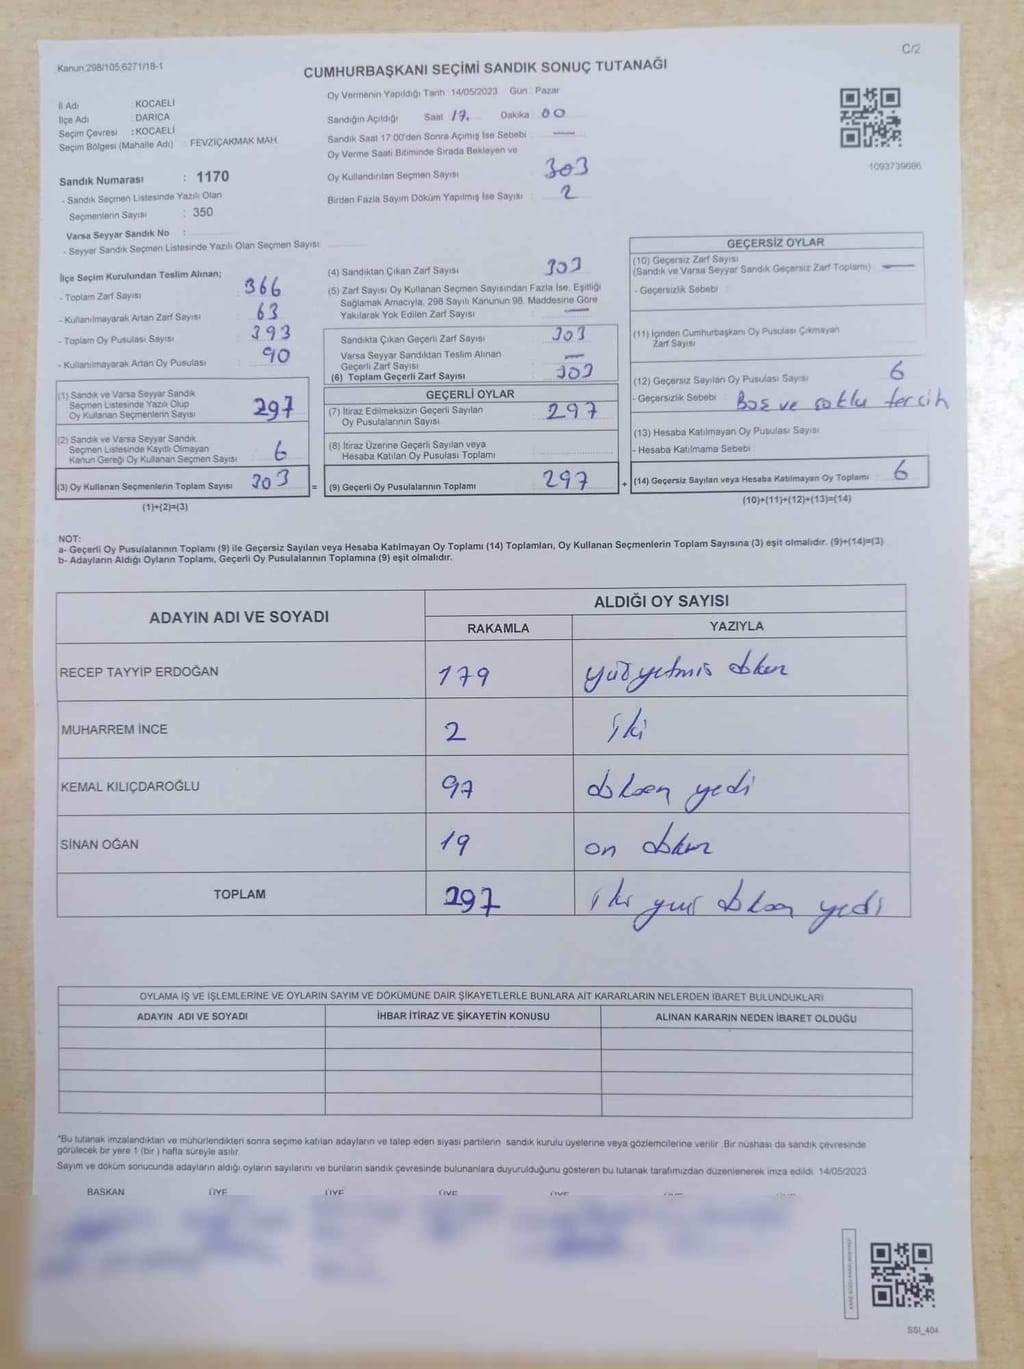 C/2
Kanun:298/105,6271/18-1
CUMHURBAŞKANI SEÇİMİ SANDIK SONUÇ TUTANAĞI
İl Adı : KOCAELİ
İlçe Adı : DARICA
Seçim Çevresi : KOCAELİ
Seçim Bölgesi (Mahalle Adı) : FEVZİÇAKMAK MAH
Sandık Numarası : 1170
- Sandık Seçmen Listesinde Yazılı Olan
Seçmenlerin Sayısı : 350
Varsa Seyyar Sandık No :
- Seyyar Sandık Seçmen Listesinde Yazılı Olan Seçmen Sayısı:
Oy Vermenin Yapıldığı Tarih : 14/05/2023 Gün : Pazar
Sandığın Açıldığı Saat 17. Dakika : 00
Sandık Saat 17:00'den Sonra Açımış İse Sebebi :
Oy Verme Saati Bitiminde Sırada Bekleyen ve
Oy Kullandırılan Seçmen Sayısı : 303
Birden Fazla Sayım Döküm Yapılmış İse Sayısı : 2
1093739686
İlçe Seçim Kurulundan Teslim Alınan;
- Toplam Zarf Sayısı : 366
- Kullanılmayarak Artan Zarf Sayısı : 63
- Toplam Oy Pusulası Sayısı : 393
- Kullanılmayarak Artan Oy Pusulası : 90
(1) Sandık ve Varsa Seyyar Sandık
Seçmen Listesinde Yazılı Olup
Oy Kullanan Seçmenlerin Sayısı : 297
(2) Sandık ve Varsa Seyyar Sandık
Seçmen Listesinde Kayıtlı Olmayan
Kanun Gereği Oy Kullanan Seçmen Sayısı : 6
(3) Oy Kullanan Seçmenlerin Toplam Sayısı : 303 =
(1)+(2)=(3)
(4) Sandıktan Çıkan Zarf Sayısı : 303
(5) Zarf Sayısı Oy Kullanan Seçmen Sayısından Fazla İse, Eşitliği
Sağlamak Amacıyla, 298 Sayılı Kanunun 98. Maddesine Göre
Yakılarak Yok Edilen Zarf Sayısı :
Sandıkta Çıkan Geçerli Zarf Sayısı : 303
Varsa Seyyar Sandıktan Teslim Alınan
Geçerli Zarf Sayısı :
(6) Toplam Geçerli Zarf Sayısı : 303
GEÇERLİ OYLAR
(7) İtiraz Edilmeksizin Geçerli Sayılan
Oy Pusulalarının Sayısı : 297
(8) İtiraz Üzerine Geçerli Sayılan veya
Hesaba Katılan Oy Pusulası Toplamı :
(9) Geçerli Oy Pusulalarının Toplamı : 297 +
GEÇERSİZ OYLAR
(10) Geçersiz Zarf Sayısı
(Sandık ve Varsa Seyyar Sandık Geçersiz Zarf Toplamı)
- Geçersizlik Sebebi :
(11) İçinden Cumhurbaşkanı Oy Pusulası Çıkmayan
Zarf Sayısı :
(12) Geçersiz Sayılan Oy Pusulası Sayısı : 6
- Geçersizlik Sebebi : Boş ve çoklu tercih
(13) Hesaba Katılmayan Oy Pusulası Sayısı :
- Hesaba Katılmama Sebebi :
(14) Geçersiz Sayılan veya Hesaba Katılmayan Oy Toplamı : 6
(10)+(11)+(12)+(13)=(14)
NOT:
a- Geçerli Oy Pusulalarının Toplamı (9) ile Geçersiz Sayılan veya Hesaba Katılmayan Oy Toplamı (14) Toplamları, Oy Kullanan Seçmenlerin Toplam Sayısına (3) eşit olmalıdır. (9)+(14)=(3)
b- Adayların Aldığı Oyların Toplamı, Geçerli Oy Pusulalarının Toplamına (9) eşit olmalıdır.
ADAYIN ADI VE SOYADI ALDIĞI OY SAYISI
RAKAMLA YAZIYLA
RECEP TAYYİP ERDOĞAN 179 yüzyetmiş dokuz
MUHARREM İNCE 2 iki
KEMAL KILIÇDAROĞLU 97 doksan yedi
SİNAN OĞAN 19 on dokuz
TOPLAM 297 iki yüz doksan yedi
OYLAMA İŞ VE İŞLEMLERİNE VE OYLARIN SAYIM VE DÖKÜMÜNE DAİR ŞİKAYETLERLE BUNLARA AİT KARARLARIN NELERDEN İBARET BULUNDUKLARI
ADAYIN ADI VE SOYADI İHBAR İTİRAZ VE ŞİKAYETİN KONUSU ALINAN KARARIN NEDEN İBARET OLDUĞU
*Bu tutanak imzalandıktan ve mühürlendikten sonra seçime katılan adayların ve talep eden siyasi partilerin sandık kurulu üyelerine veya gözlemcilerine verilir. Bir nüshası da sandık çevresinde
görülecek bir yere 1 (bir) hafta süreyle asılır.
Sayım ve döküm sonucunda adayların aldığı oyların sayılarını ve bunların sandık çevresinde bulunanlara duyurulduğunu gösteren bu tutanak tarafımızdan düzenlenerek imza edildi. 14/05/2023
BAŞKAN ÜYE ÜYE ÜYE
SSİ_404